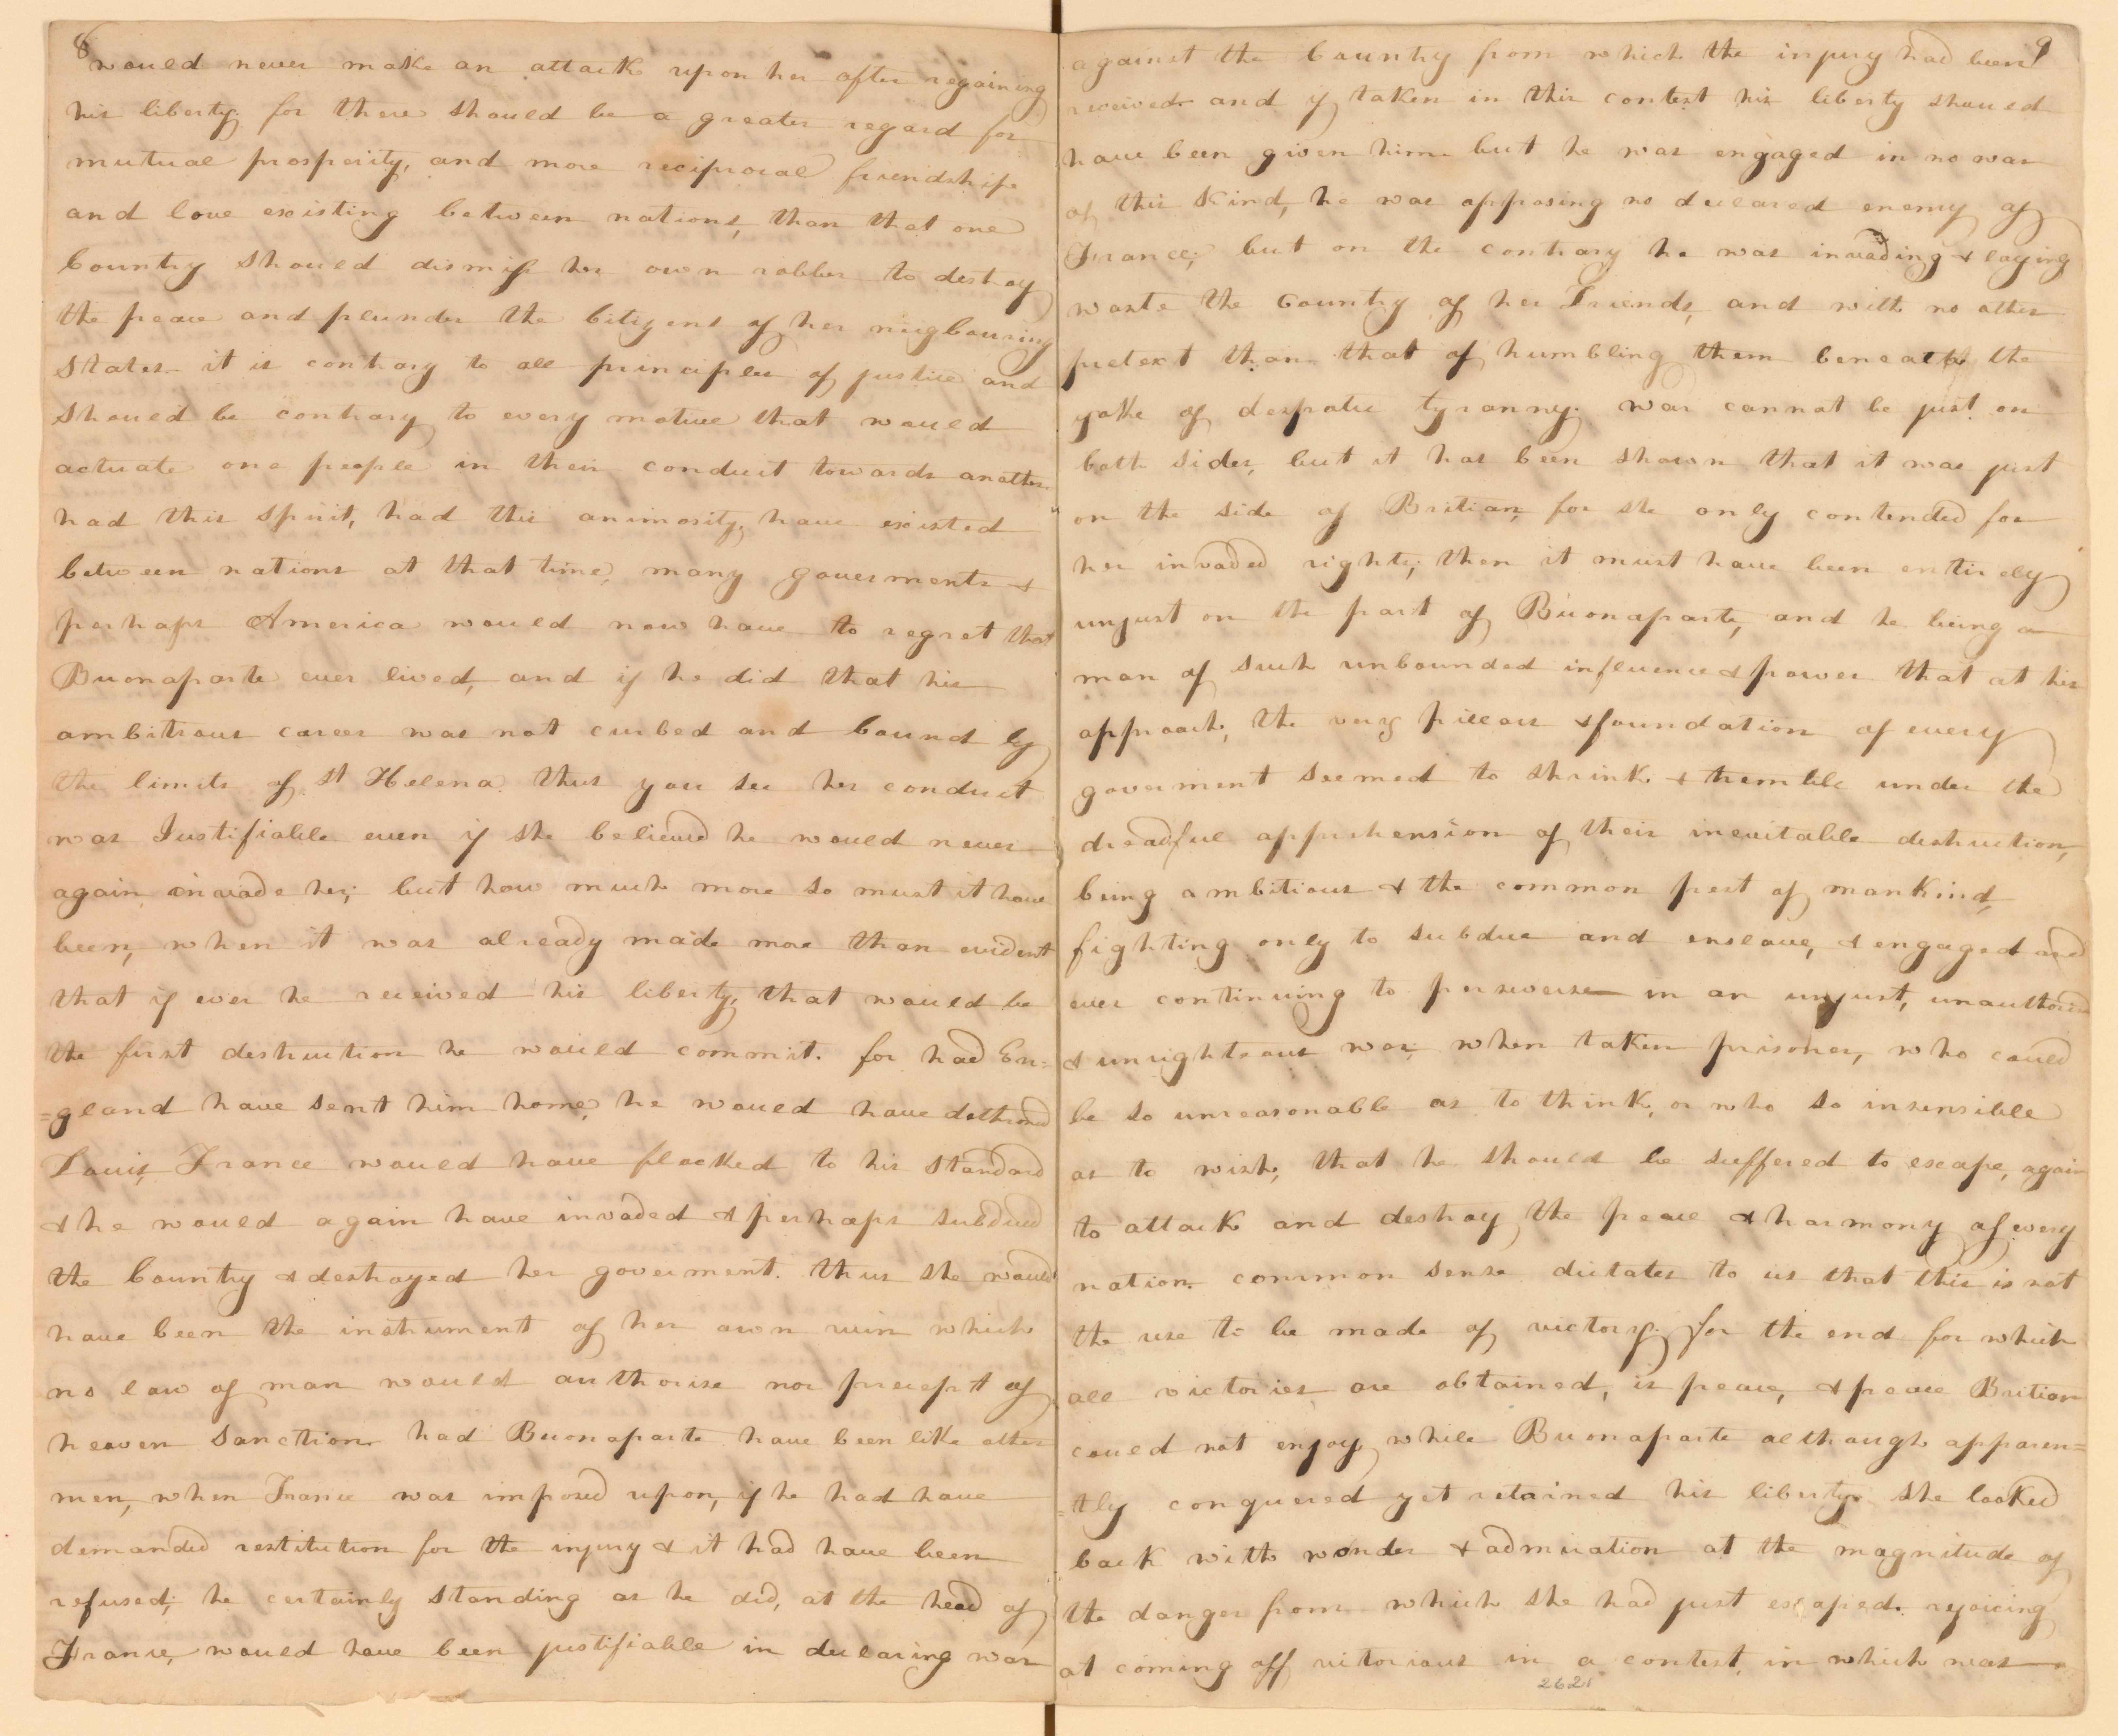 8
would never make an attack upon her after regaining
his liberty. for there should be a greater regard for
mutual prosperity, and more reciprocal friendship
and love existing between nations, than that one
Country should dismiss her own robber to destroy
the peace and plunder the Citizens of her neigbouring
States. it is contrary to all principles of justice and
should be contrary to every motive that would
actuate one people in their conduct towards another.
had this spirit, had this animosity, have existed
between nations at that time, many goverments &
perhaps America would now have to regret that
Buonaparte ever lived, and if he did that his
ambitious career was not curbed and bound by
the limits of St Helena. thus you see her conduct
was Justifiable even if she believed he would never
again invade her; but how much more so must it have
been, when it was already made more than evident
that if ever he received his liberty, that would be
the first destruction he would commit. for had En=
=gland have sent him home, he would have dethroned
Louis, France would have flocked to his Standard
& he would again have invaded & perhaps subdued
the Country & destroyed her goverment. thus she would
have been the instrument of her own ruin which
no law of man would authorise nor precept of
heaven Sanction. had Buonaparte have been like other
men, when France was imposed upon, if he had have
demanded restitution for the injury & it had have been
refused; he certainly standing as he did, at the head of
France, would have been justifiable in declaring war
9
against the Country from which the injury had been
received. and if taken in this contest his liberty should
have been given him. but he was engaged in no war
of this kind, he was opposing no declared enemy of
France; but on the contrary he was invading & laying
waste the Country of her Friends, and with no other
pretext than that of humbling them beneath the
yoke of despotic tyranny. war cannot be just on
both sides, but it has been shown that it was just
on the side of Britian, for she only contended for
her invaded rights; then it must have been entirely
unjust on the part of Buonaparte, and he being a
man of such unbounded influence & power that at his
approach, the very pillars & foundation of every
goverment seemed to shrink & tremble under the
dreadful apprehension of their inevitable destruction,
being ambitious & the common pest of mankind,
fighting only to subdue and enslave, & engaged and
ever continuing to persevere in an unjust, unauthorised
& unrighteous war; when taken prisoner, who could
be so unreasonable as to think, or who so insensible
as to wish, that he should be suffered to escape, again
to attack and destroy the peace & harmony of every
nation. common sense dictates to us that this is not
the use to be made of victory. for the end for which
all victories are obtained, is peace, & peace Brition
could not enjoy while Buonaparte although apparen=
=tly conquered yet retained his liberty. she looked
back with wonder & admiration at the magnitude of
the danger from which she had just escaped. rejoicing
at coming off victorious in a contest, in which was
2621